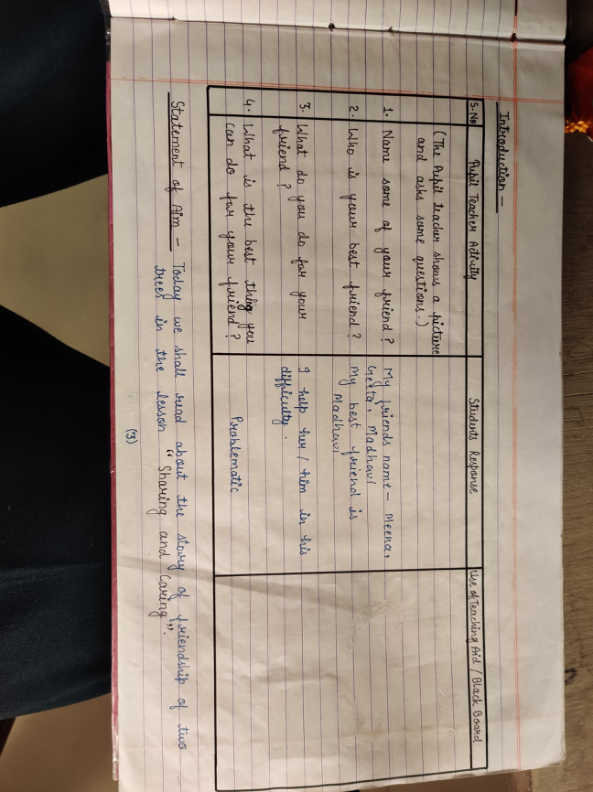 Introduction -
S.No Pupil Teacher Activity Students Response Use of Teaching Aid / Black Board
(The Pupil teacher shows a picture
and asks some questions.)
1. Name some of your friend? My friends name - Meena,
Geeta, Madhavi
2. Who is your best friend? My best friend is
Madhavi
3. What do you do for your I help her / him in his
friend? difficulty.
4. What is the best thing you Problematic
can do for your friend?
Statement of Aim - Today we shall read about the story of friendship of two
trees in the lesson "Sharing and Caring".
(3)